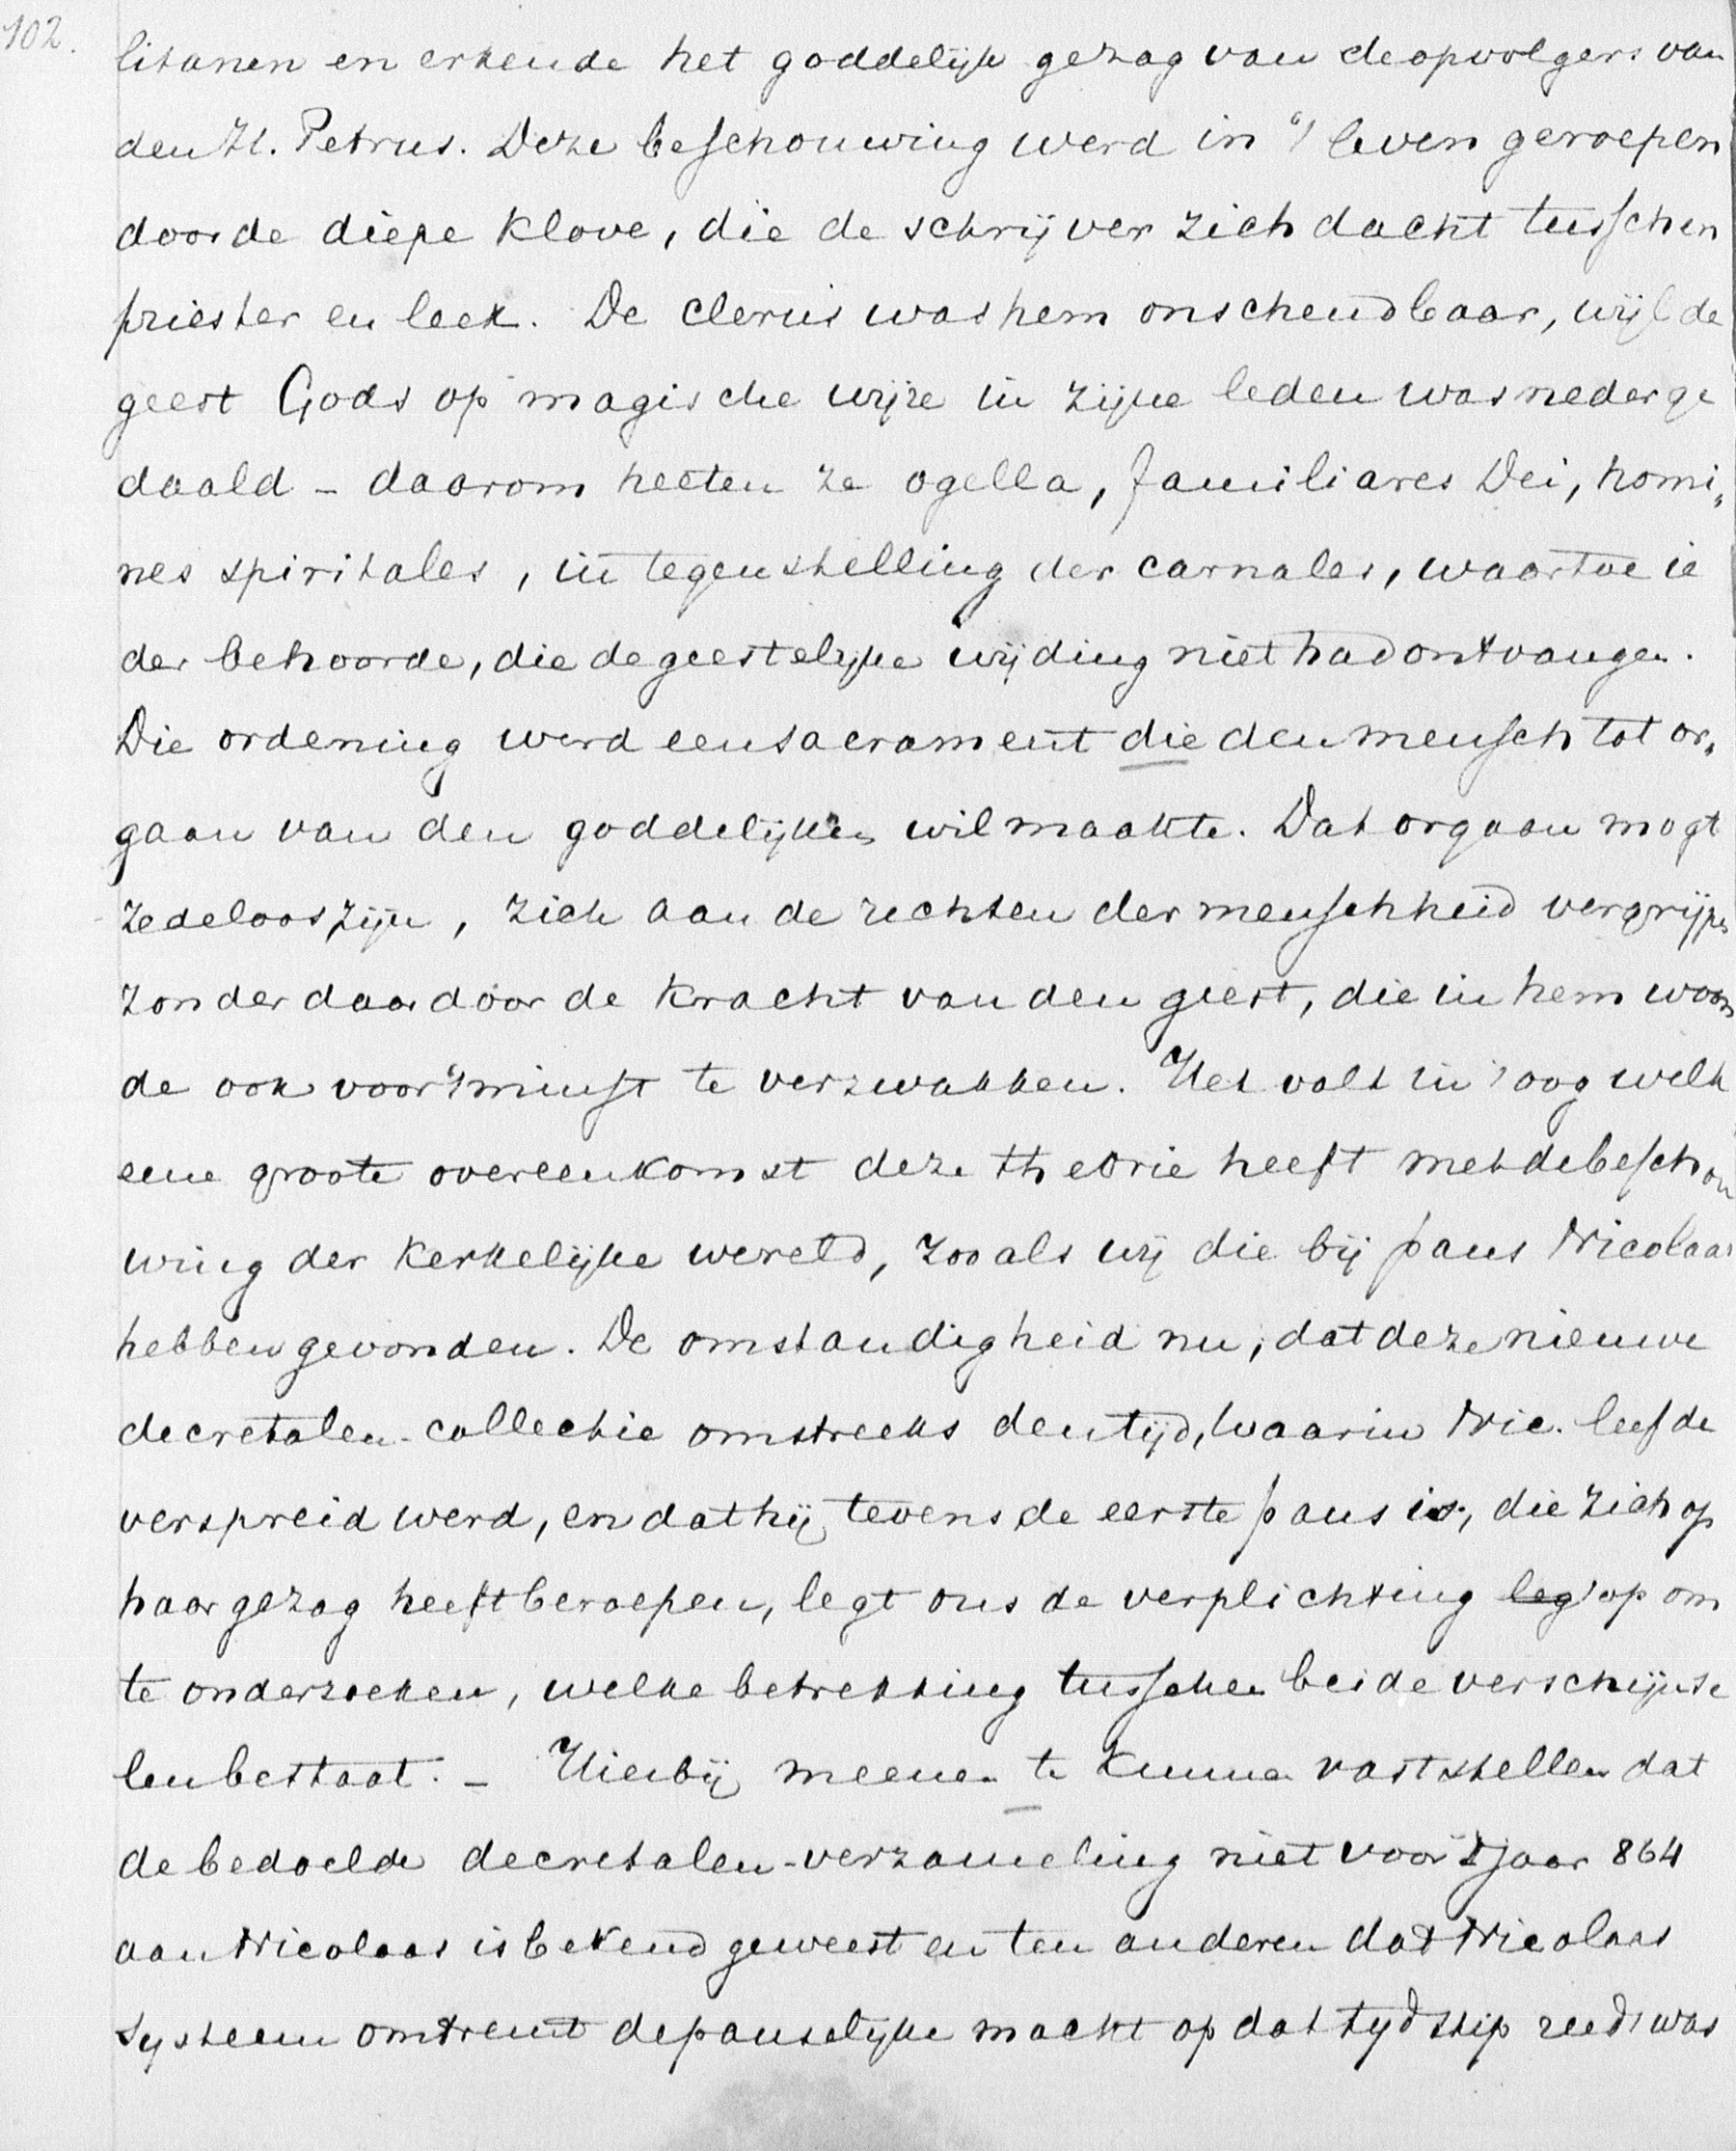 102.
litanen en erkende het goddelijk gezag van de opvolgers van
den H. Petrus. Deze beschouwing werd in 't leven geroepen
door de diepe klove, die de schrijver zich dacht tusschen
priester en leek. De clerus was hem onschendbaar, wijl de
geest Gods op magische wijze in zijne leden was nederge
daald - daarom heeten ze ogella, familiares Dei, homi„
nes spiritales, in tegenstelling der carnales, waartoe ie
der behoorde, die de geestelijke wijding niet had ontvangen.
Die ordening werd een sacrament die den mensch tot or„
gaan van den goddelijken wil maakte. Dat orgaan mogt
zedeloos zijn, zich aan de rechten der menschheid vergrijpen
zonder daardoor de kracht van den geest, die in hem woon
de ook voor 't minst te verzwakken. Het valt in 't oog welk
eene groote overeenkomst deze theorie heeft met de beschou
wing der kerkelijke wereld, zooals wij die bij paus Nicolaas
hebben gevonden. De omstandigheid nu, dat deze nieuwe
decretalen-collectie omstreeks den tijd, waarin Nic. leefde
verspreid werd, en dat hij tevens de eerste paus is, die zich op
haar gezag heeft beroepen, legt ons de verplichting leg op om
te onderzoeken, welke betrekking tusschen beide verschijnse
len bestaat. - Hierbij meenen te kunnen vaststellen dat
de bedoelde decretalen-verzameling niet voor 't jaar 864
aan Nicolaas is bekend geweest en ten anderen dat Nicolaas
systeem omtrent de pauselijke macht op dat tijdstip reeds was